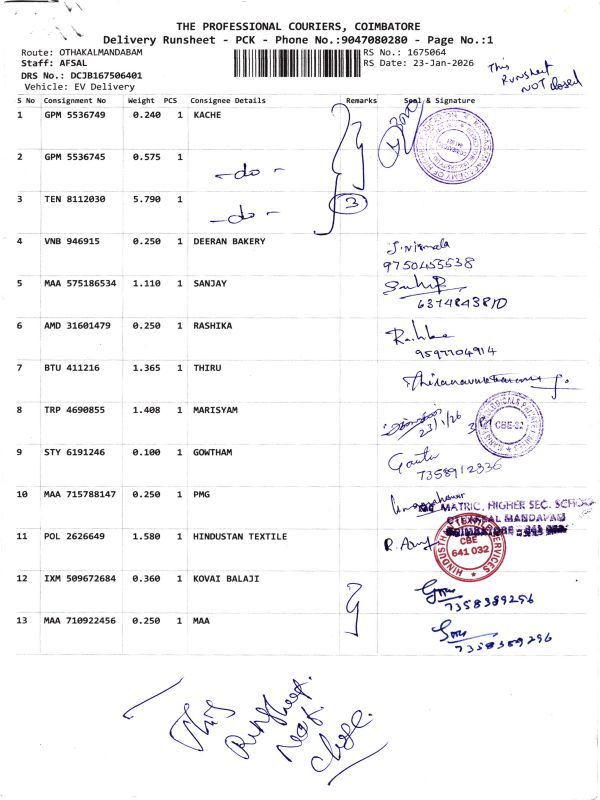 THE PROFESSIONAL COURIERS, COIMBATORE
Delivery Runsheet - PCK - Phone No.:9047080280 - Page No.:1
Route: OTHAKALMANDABAM
Staff: AFSAL
DRS No.: DCJB167506401
Vehicle: EV Delivery
RS No.: 1675064
RS Date: 23-Jan-2026
This
Runsheet
NOT closed
S No Consignment No Weight PCS Consignee Details Remarks Seal & Signature
1 GPM 5536749 0.240 1 KACHE
2 GPM 5536745 0.575 1 -do-
3 TEN 8112030 5.790 1 -do- 3
4 VNB 946915 0.250 1 DEERAN BAKERY J.Nirmala
9750455538
5 MAA 575186534 1.110 1 SANJAY
6374843810
6 AMD 31601479 0.250 1 RASHIKA
9597704914
7 BTU 411216 1.365 1 THIRU
8 TRP 4690855 1.408 1 MARISYAM
23/1/26
CBE-32
9 STY 6191246 0.100 1 GOWTHAM Gautam
7358912336
10 MAA 715788147 0.250 1 PMG
MATRIC. HIGHER SEC. SCHOOL
11 POL 2626649 1.580 1 HINDUSTAN TEXTILE
CBE
641 032
12 IXM 509672684 0.360 1 KOVAI BALAJI
7358389296
13 MAA 710922456 0.250 1 MAA
7358389296
This
Runsheet
not
close.